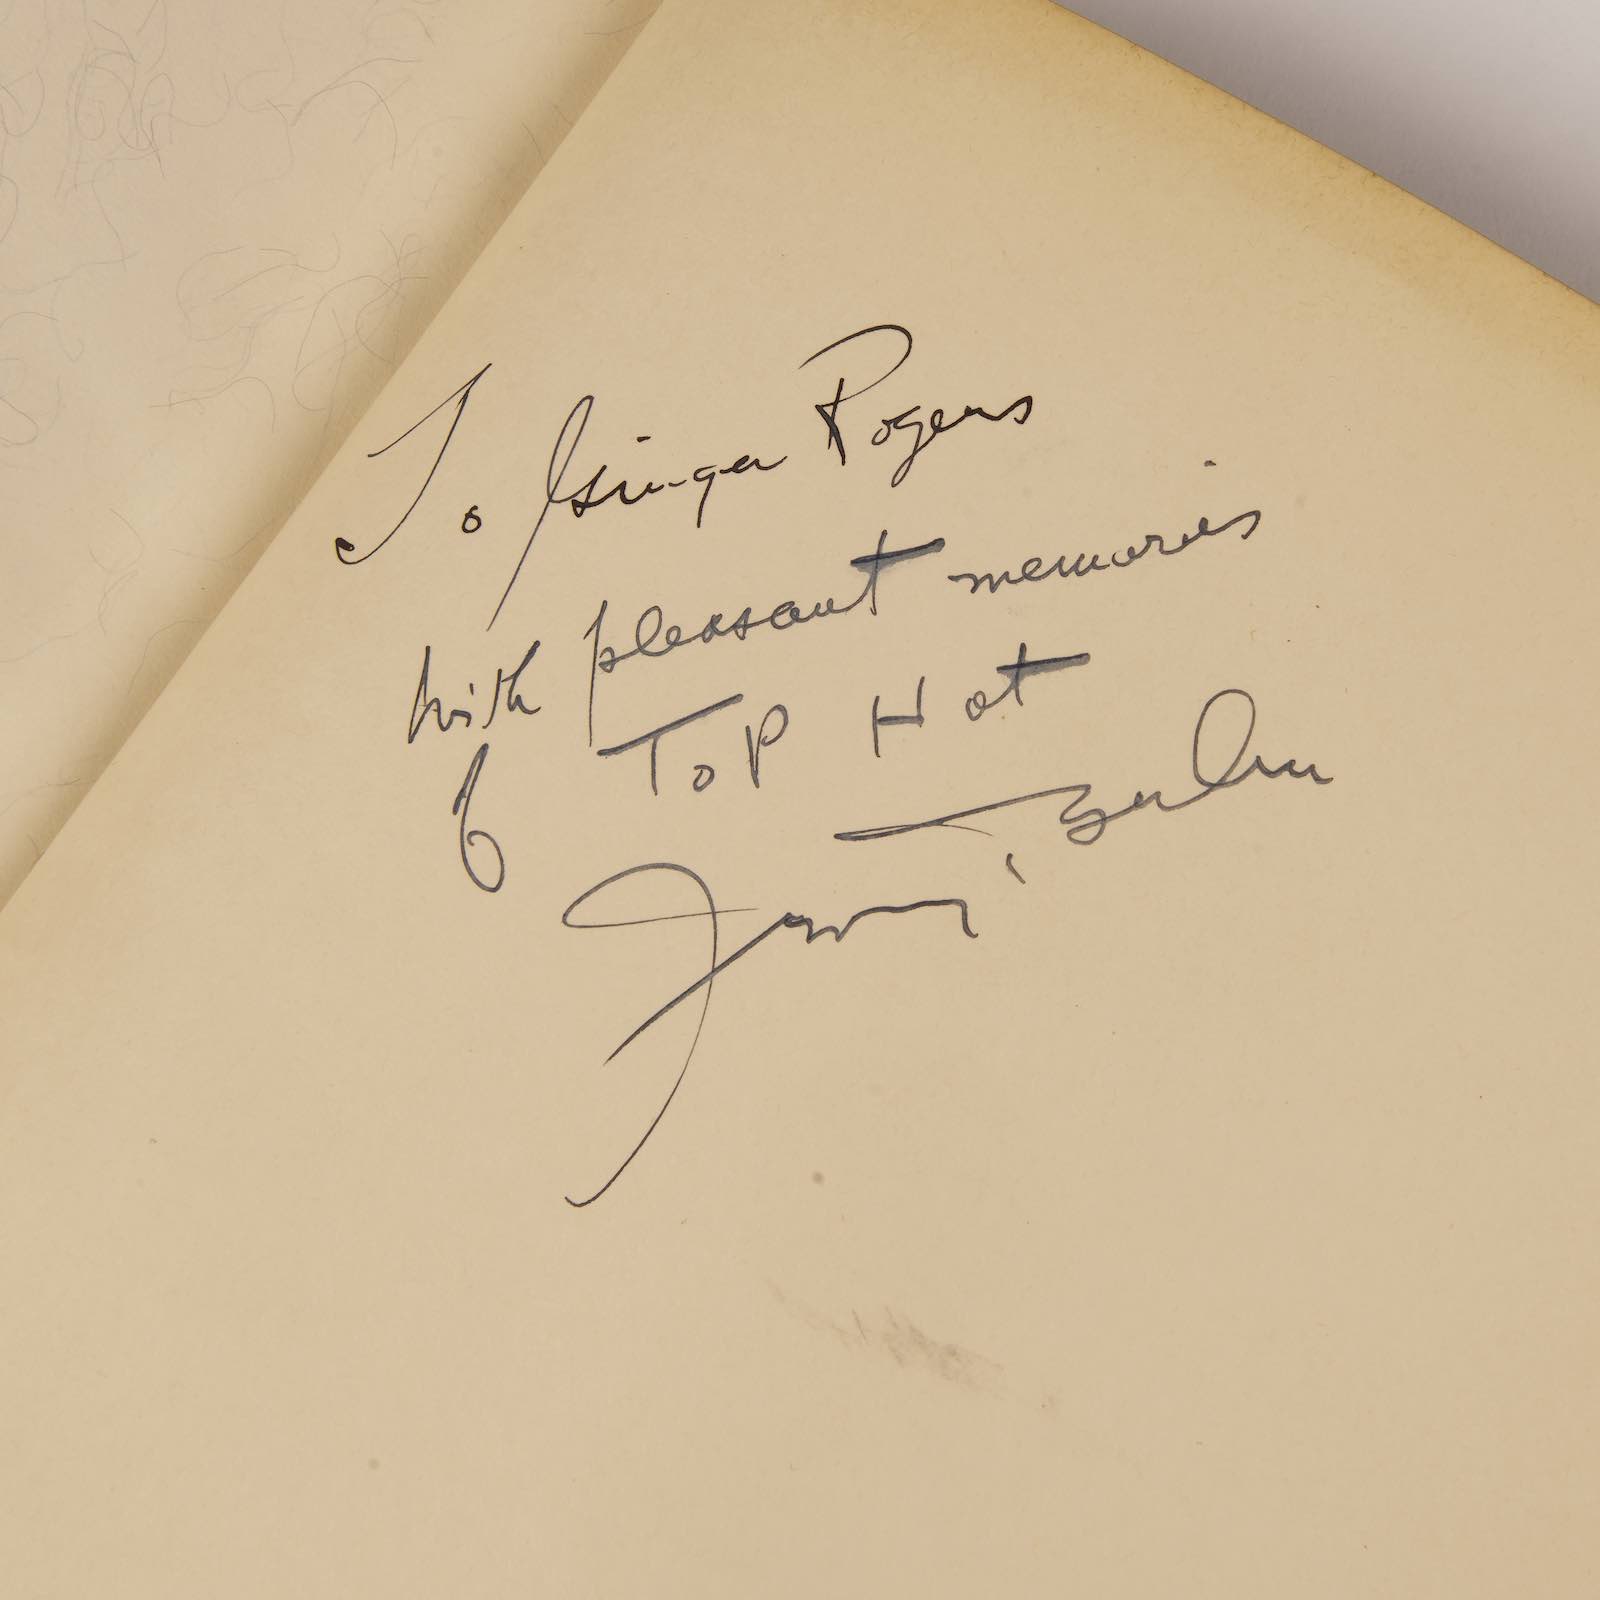 To Ginger Rogers
with pleasant memories
of Top Hat
Irving Berlin